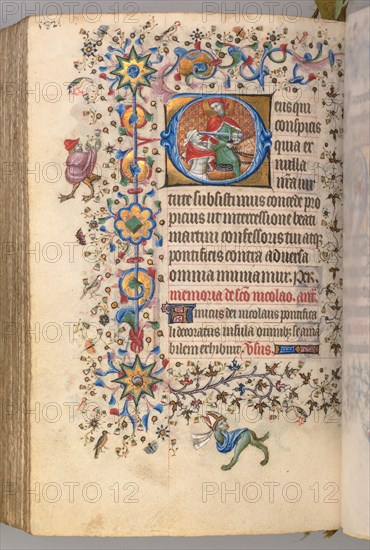 eus qui
conspicis
quia ex
nulla
nra uir
tute subsistimus concede pro
picius ut intercessione beati
martini confessoris tui atq;
pontificis contra aduersa
omnia muniamur. Per
memoria de sco nicolao. ant.
Amicus dei nicolaus pontifica
li decoratus insula omnib; se ama
bilem exhibuit. Vsus.
PHOTO12